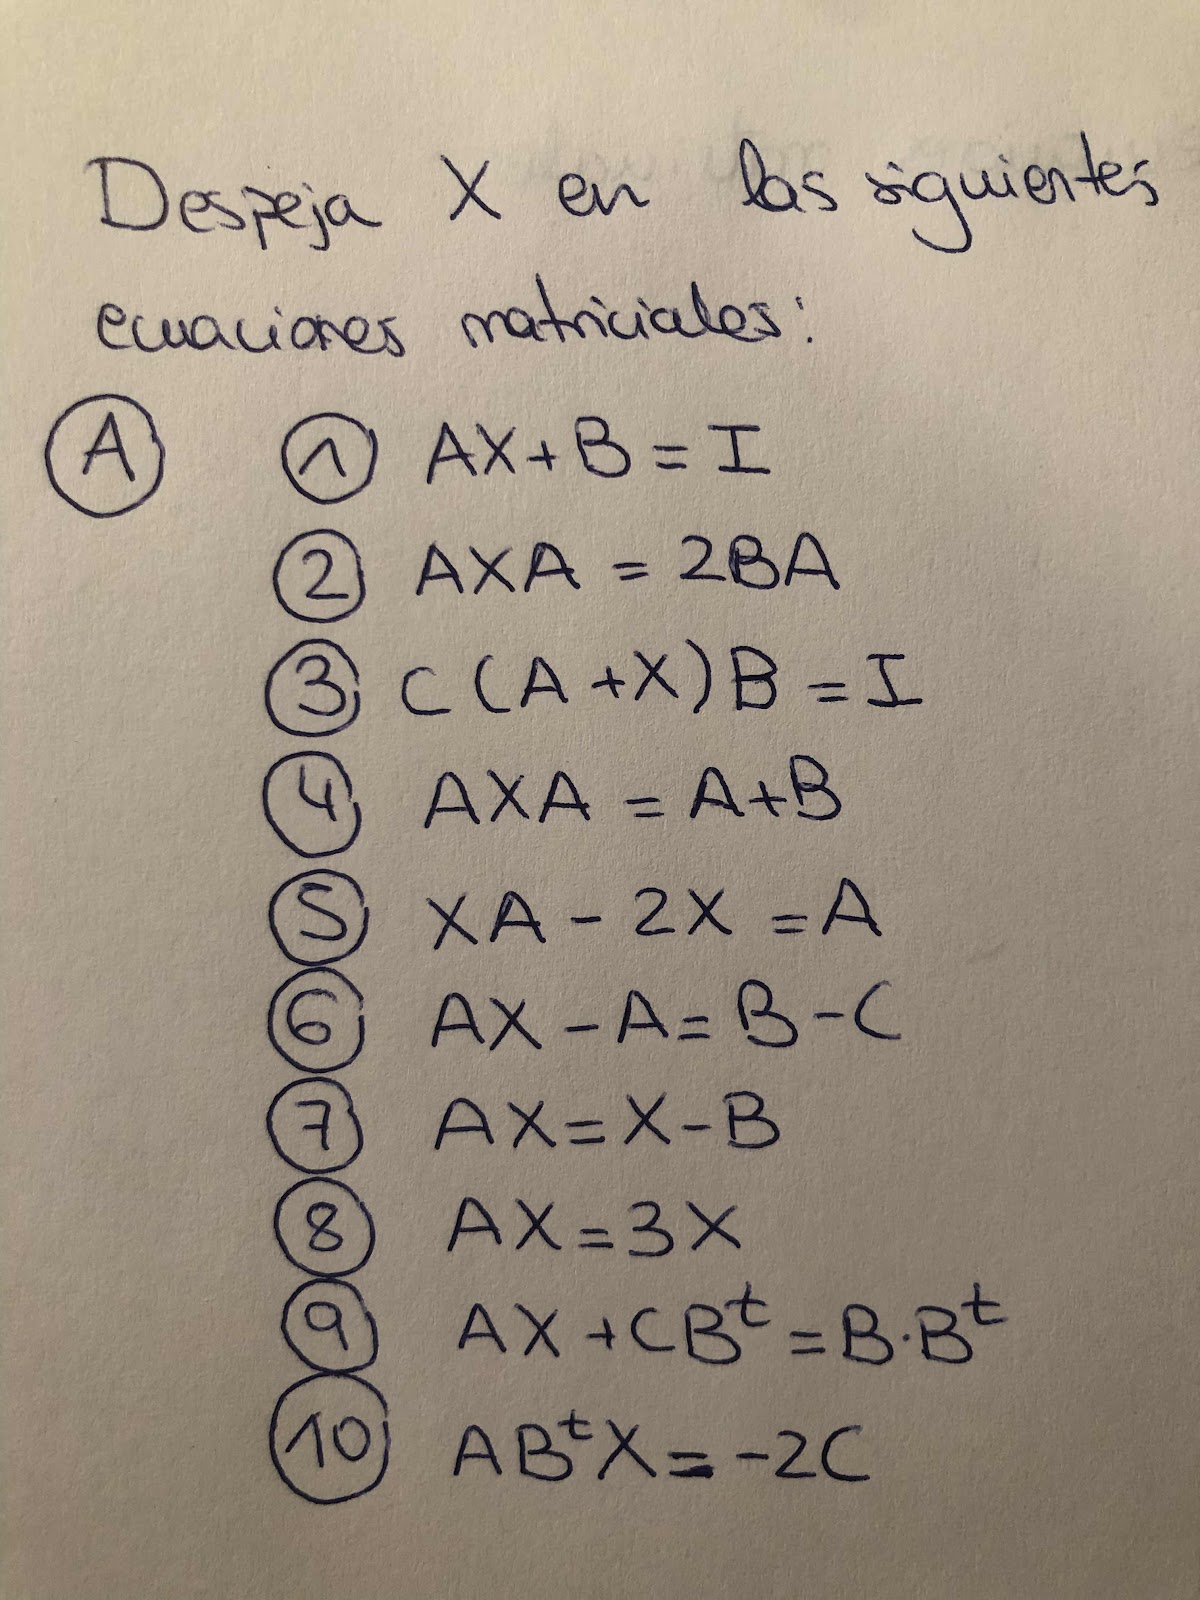 Despeja X en las siguientes
ecuaciones matriciales:
A 1 AX+B=I
2 AXA = 2BA
3 C(A+X)B=I
4 AXA = A+B
5 XA - 2X = A
6 AX - A = B - C
7 AX = X - B
8 AX = 3X
9 AX + CBᵗ = B·Bᵗ
10 ABᵗX = -2C